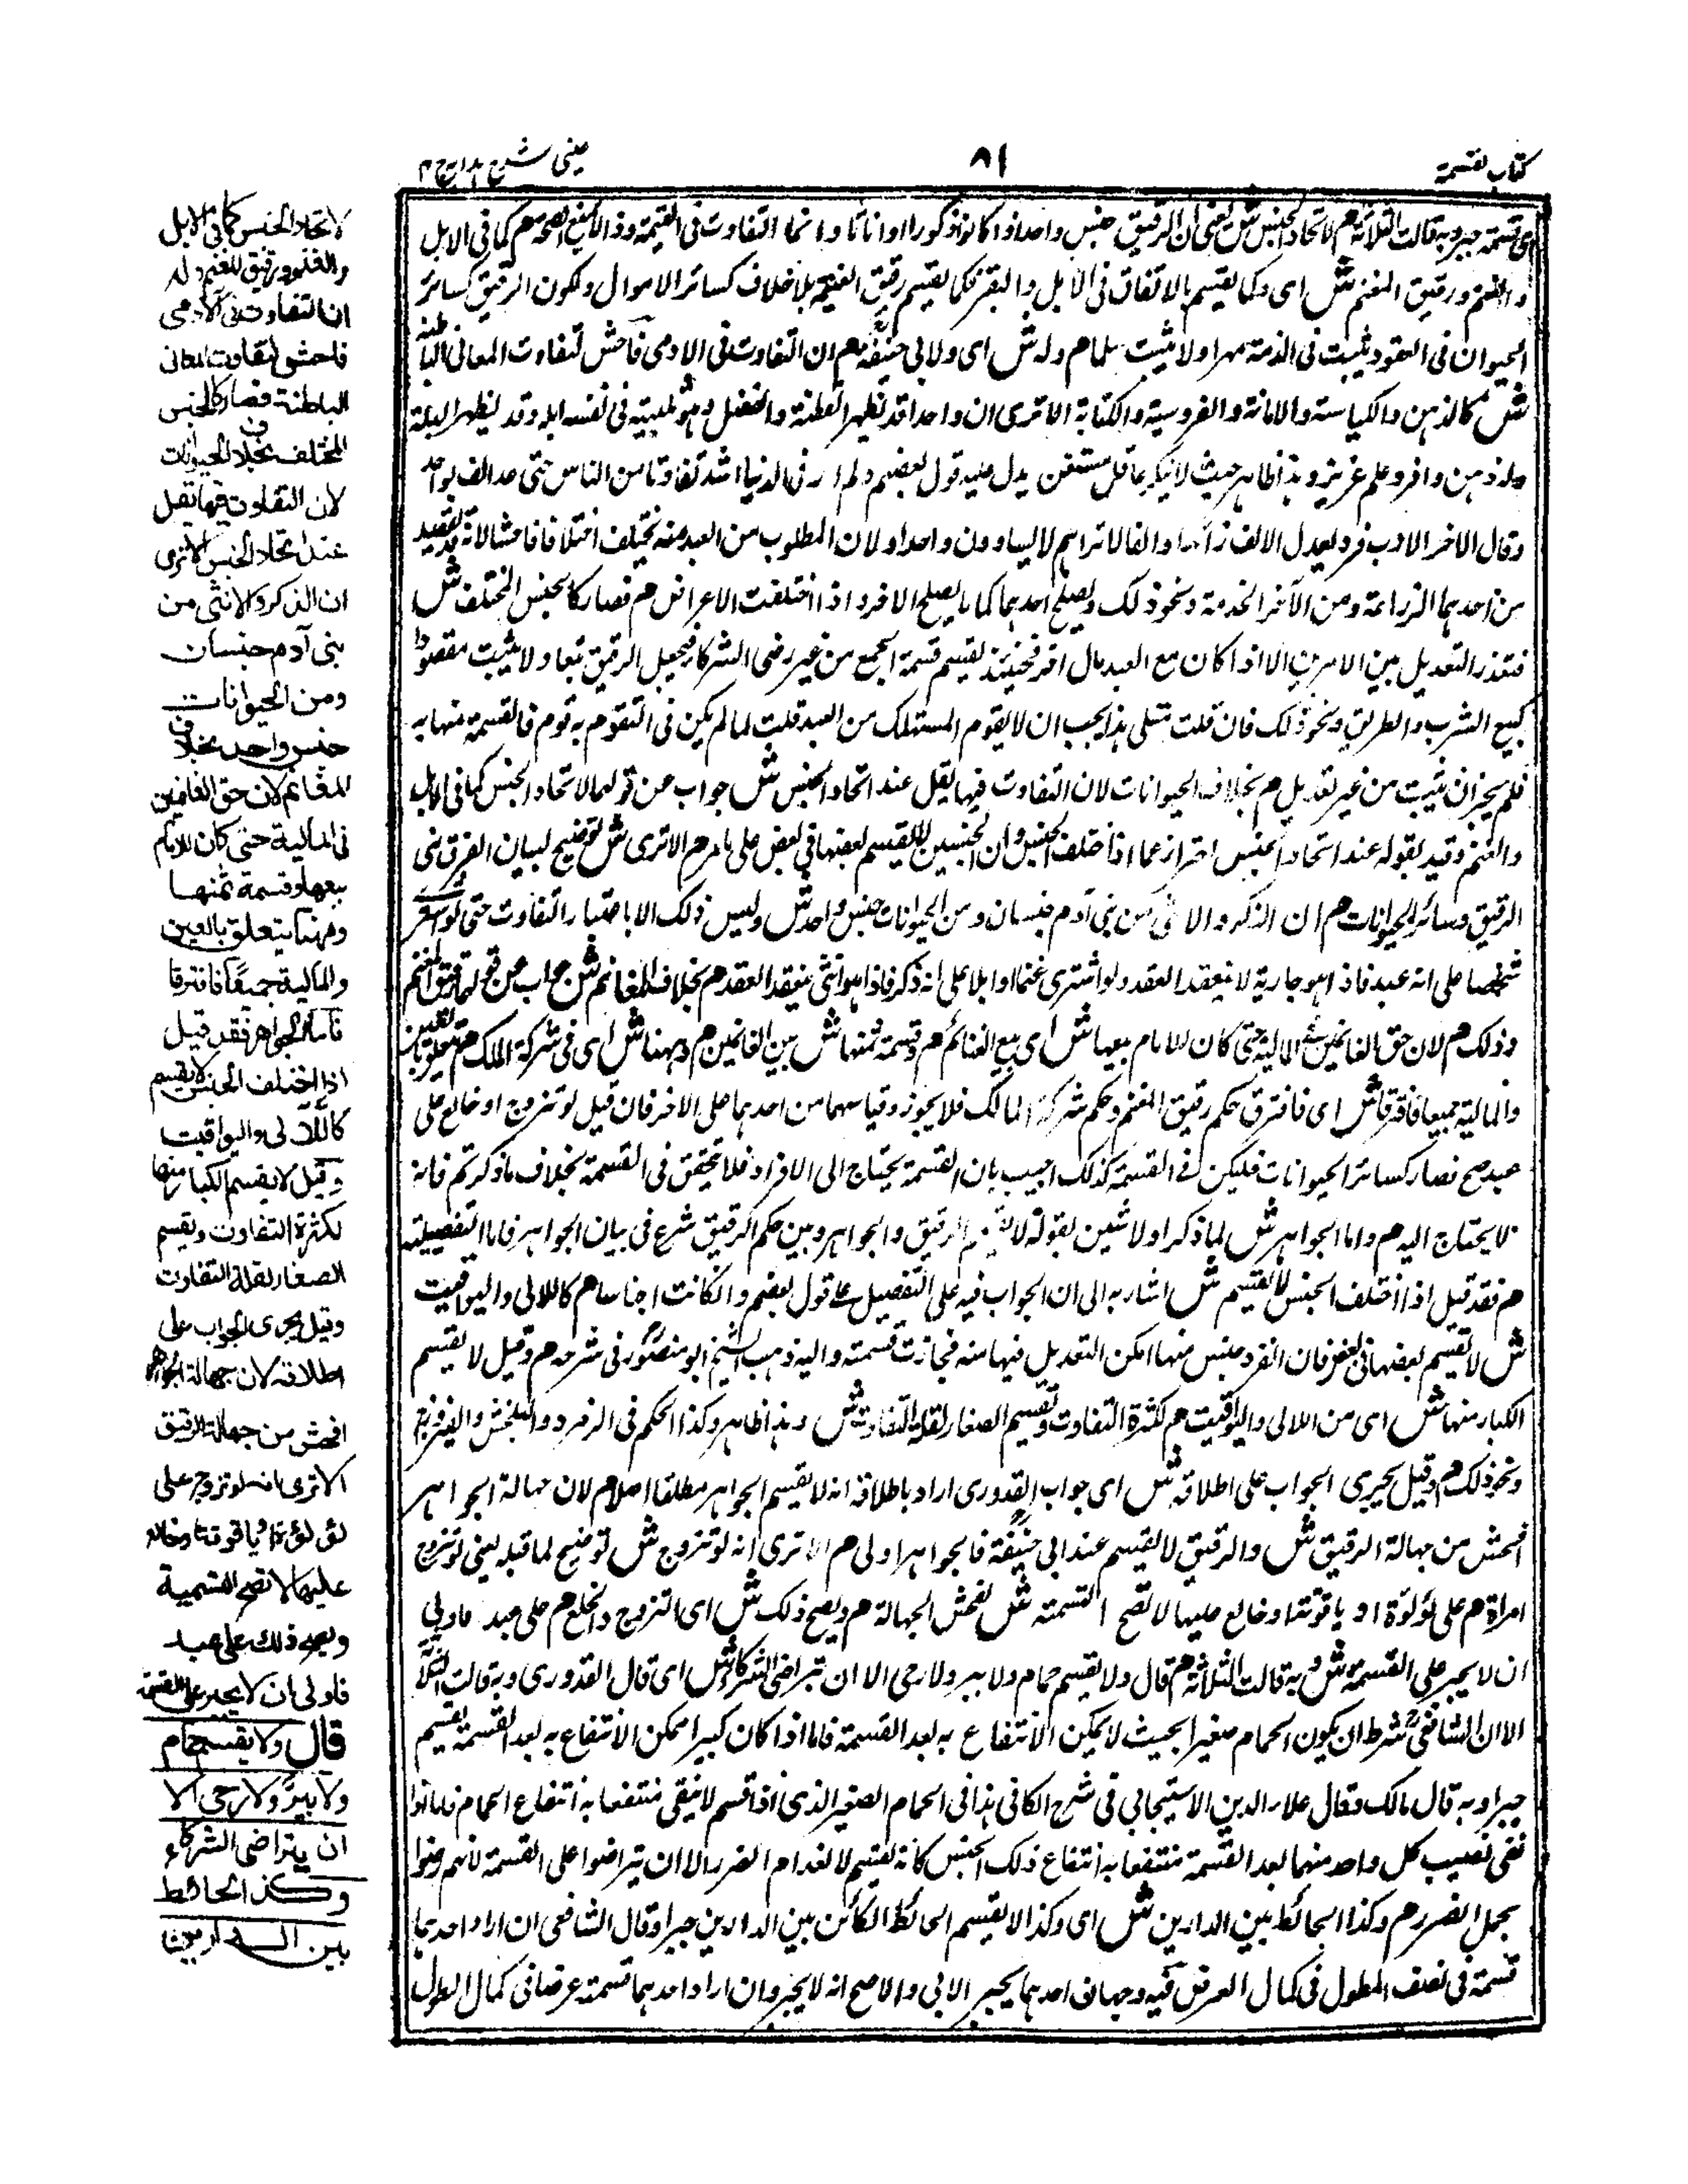 كتاب القسمة
٨١
عينى شرح هدايه ج ٣
اى قسمة جبر وبه قالت الثلاثة هم لاتحاد الجنس ش يعنى ان الرقيق جنس واحد اذا كانوا ذكورا او اناثا وانما التفاوت فى القيمة وذا لا يمنع الصحة هم كما فى الابل
والغنم ورقيق المغنم ش اى وكما يقسم بالاتفاق فى الابل والبقر فكما يقسم رقيق المغنم بلا خلاف كسائر الاموال ولكون الرقيق كسائر
الحيوان فى العقود يثبت فى الذمة مهرا ولا يثبت سلما هم وله ش اى ولابى حنيفة هم ان التفاوت فى الادمى فاحش لتفاوت المعانى الباطنة
ش كالذهن والكياسة والامانة والفروسية والكتابة الا ترى ان واحدا قد يظهر الفطنة والفضل وهو فى نفسه ابله وقد يظهر البلة
وله ذهن وافر وعلم غزير وهذا ظاهر حيث لا ينكره عاقل يدل عليه قول بعضهم ولم ار فى الدنيا اشد تفاوتا من الناس حتى عد الف بواحد
وقال الاخر الارب فرد يعدل الالف والفا لا تراهم لا يساوون واحدا ولان المطلوب من العبد منه تختلف اختلافا فاحشا لانه قد يقصد
من احدهما الزراعة ومن الآخر الخدمة ونحو ذلك ويصلح احدهما كما لا يصلح الاخر واذا اختلفت الاغراض هم فصار كالجنس المختلف ش
فتعذر التعديل بين الامرين الا اذا كان مع العبد مال اخر فحينئذ يقسم قسمة الجمع من غير رضى الشركاء فيجعل الرقيق تبعا ولا يثبت مقصودا
كبيع الشرب والطريق ونحو ذلك فان قلت فعلى هذا يجب ان لا يقوم المستهلك من العبد قلت لما لم يكن فى التقوم به قوم فالقسمة منها به
فلم يجز ان يثبت من غير تعديل هم بخلاف الحيوانات لان التفاوت فيها يقل عند اتحاد الجنس ش جواب عن قولهما لاتحاد الجنس كما فى الابل
والغنم وقيد بقوله عند اتحاد الجنس احترازا عما اذا اختلف الجنس وان الجنسين لا يقسم بعضها فى بعض على ما مر هم الا ترى ش توضيح لبيان الفرق بين
الرقيق وسائر الحيوانات هم ان الذكر والانثى من بنى آدم جنسان ومن الحيوانات جنس واحد ش وليس ذلك الا باعتبار التفاوت حتى لو اشترى
شخصا على انه عبد فاذا هو جارية لا ينعقد العقد ولو اشترى غنما او ابلا على انه ذكر فاذا هو انثى ينعقد العقد هم بخلاف المغانم ش جواب عن قولهما ورقيق المغنم
وذلك هم لان حق الغانمين فى المالية حتى كان للامام بيعها ش اى بيع الغنائم هم وقسمة ثمنها ش بين الغانمين هم وههنا ش اى فى شركة الملك هم يتعلق بالعين
والمالية جميعا فافترقا ش اى فافترق حكم رقيق المغنم وحكم شركة المالك فلا يجوز وقياسهما من احدهما على الاخر فان قيل لو تزوج او خالع على
عبد صح فصار كسائر الحيوانات فليكن فى القسمة كذلك اجيب بان القسمة يحتاج الى الافراد فلا تحقق فى القسمة بخلاف ما ذكرتم فانه
لا يحتاج اليه هم واما الجواهر ش لما ذكر اولا شين بقوله لا يقسم الرقيق والجواهر وبين حكم الرقيق شرع فى بيان الجواهر فاما التفصيلية
هم فقد قيل اذا اختلف الجنس لا يقسم ش اشار به الى ان الجواب فيه على التفصيل على قول بعضهم وان كانت اجناسا هم كاللآلى واليواقيت
ش لا تقسم بعضها فى بعض فان انفرد جنس منها امكن التعديل فيها منه فجازت قسمته واليه ذهب الشيخ ابو منصور فى شرحه هم وقيل لا يقسم
الكبار منها ش اى من اللآلى واليواقيت هم لكثرة التفاوت وتقسيم الصغار لقلة التفاوت ش وهذا ظاهر وكذا الحكم فى الزمرد والبلخش والفيروزج
ونحو ذلك هم وقيل يجرى الجواب على اطلاقه ش اى جواب القدورى اراد باطلاقه انه لا يقسم الجواهر مطلقا اصلا هم لان جهالة الجواهر
افحش من جهالة الرقيق ش والرقيق لا يقسم عند ابى حنيفة فالجواهر اولى هم الا ترى انه لو تزوج ش توضيح لما قبله يعنى لو تزوج
امراة هم على لؤلؤة او ياقوتة او خالع عليها لا تصح التسمية ش لفحش الجهالة هم ويصح ذلك ش اى التزوج والخلع هم على عبد فاولى
ان لا يجبر على القسمة ش وبه قالت الثلاثة هم قال ولا يقسم حمام ولا بير ولا رحى الا ان تراضى الشركاء ش اى قال القدورى وبه قالت الثلاثة
الا ان الشافعى شرط ان يكون الحمام صغيرا بحيث لا يمكن الانتفاع به بعد القسمة فاما اذا كان كبيرا ممكن الانتفاع به بعد القسمة يقسم
جبرا وبه قال مالك وقال علاء الدين الاسبيجابى فى شرح الكافى هذا فى الحمام الصغير الذى اذا قسم لا يبقى منتفعا به انتفاع الحمام فاما اذا
بقى نصيب كل واحد منهما بعد القسمة منتفعا به انتفاع ذلك الجنس كانه يقسم لانعدام الضرر الا ان يتراضوا على القسمة لانهم رضوا
بحمل الضرر هم وكذا الحائط بين الدارين ش اى وكذا لا يقسم الحائط الكائن بين الدارين جبرا وقال الشافعى ان اراد احدهما
قسمة فى نصف الطول فى كمال العرض فيه وجهان احدهما يجبر الابى والاصح انه لا يجبر وان اراد احدهما قسمته عرضا فى كمال الطول
لاتحاد الجنس كما فى الابل
والغنم ورقيق المغنم وله
ان التفاوت فى الآدمى
فاحش لتفاوت المعانى
الباطنة فصار كالجنس
المختلف بخلاف الحيوانات
لان التفاوت فيها يقل
عند اتحاد الجنس الا ترى
ان الذكر والانثى من
بنى آدم جنسان
ومن الحيوانات
جنس واحد بخلاف
المغانم لان حق الغانمين
فى المالية حتى كان للامام
بيعها وقسمة ثمنها
وههنا يتعلق بالعين
والمالية جميعًا فافترقا
فاما الجواهر فقد قيل
اذا اختلف الجنس لا يقسم
كاللآلى واليواقيت
وقيل لا يقسم الكبار منها
لكثرة التفاوت ويقسم
الصغار لقلة التفاوت
وقيل يجرى الجواب على
اطلاقه لان جهالة الجواهر
افحش من جهالة الرقيق
الا ترى انه لو تزوج على
لؤلؤة او ياقوتة او خالع
عليها لا تصح التسمية
ويصح ذلك على عبد
فاولى ان لا يجبر على القسمة
قال ولا يقسم حمام
ولا بيرٌ ولا رحى الا
ان يتراضى الشركاء
وكذا الحائط
بين الدارين